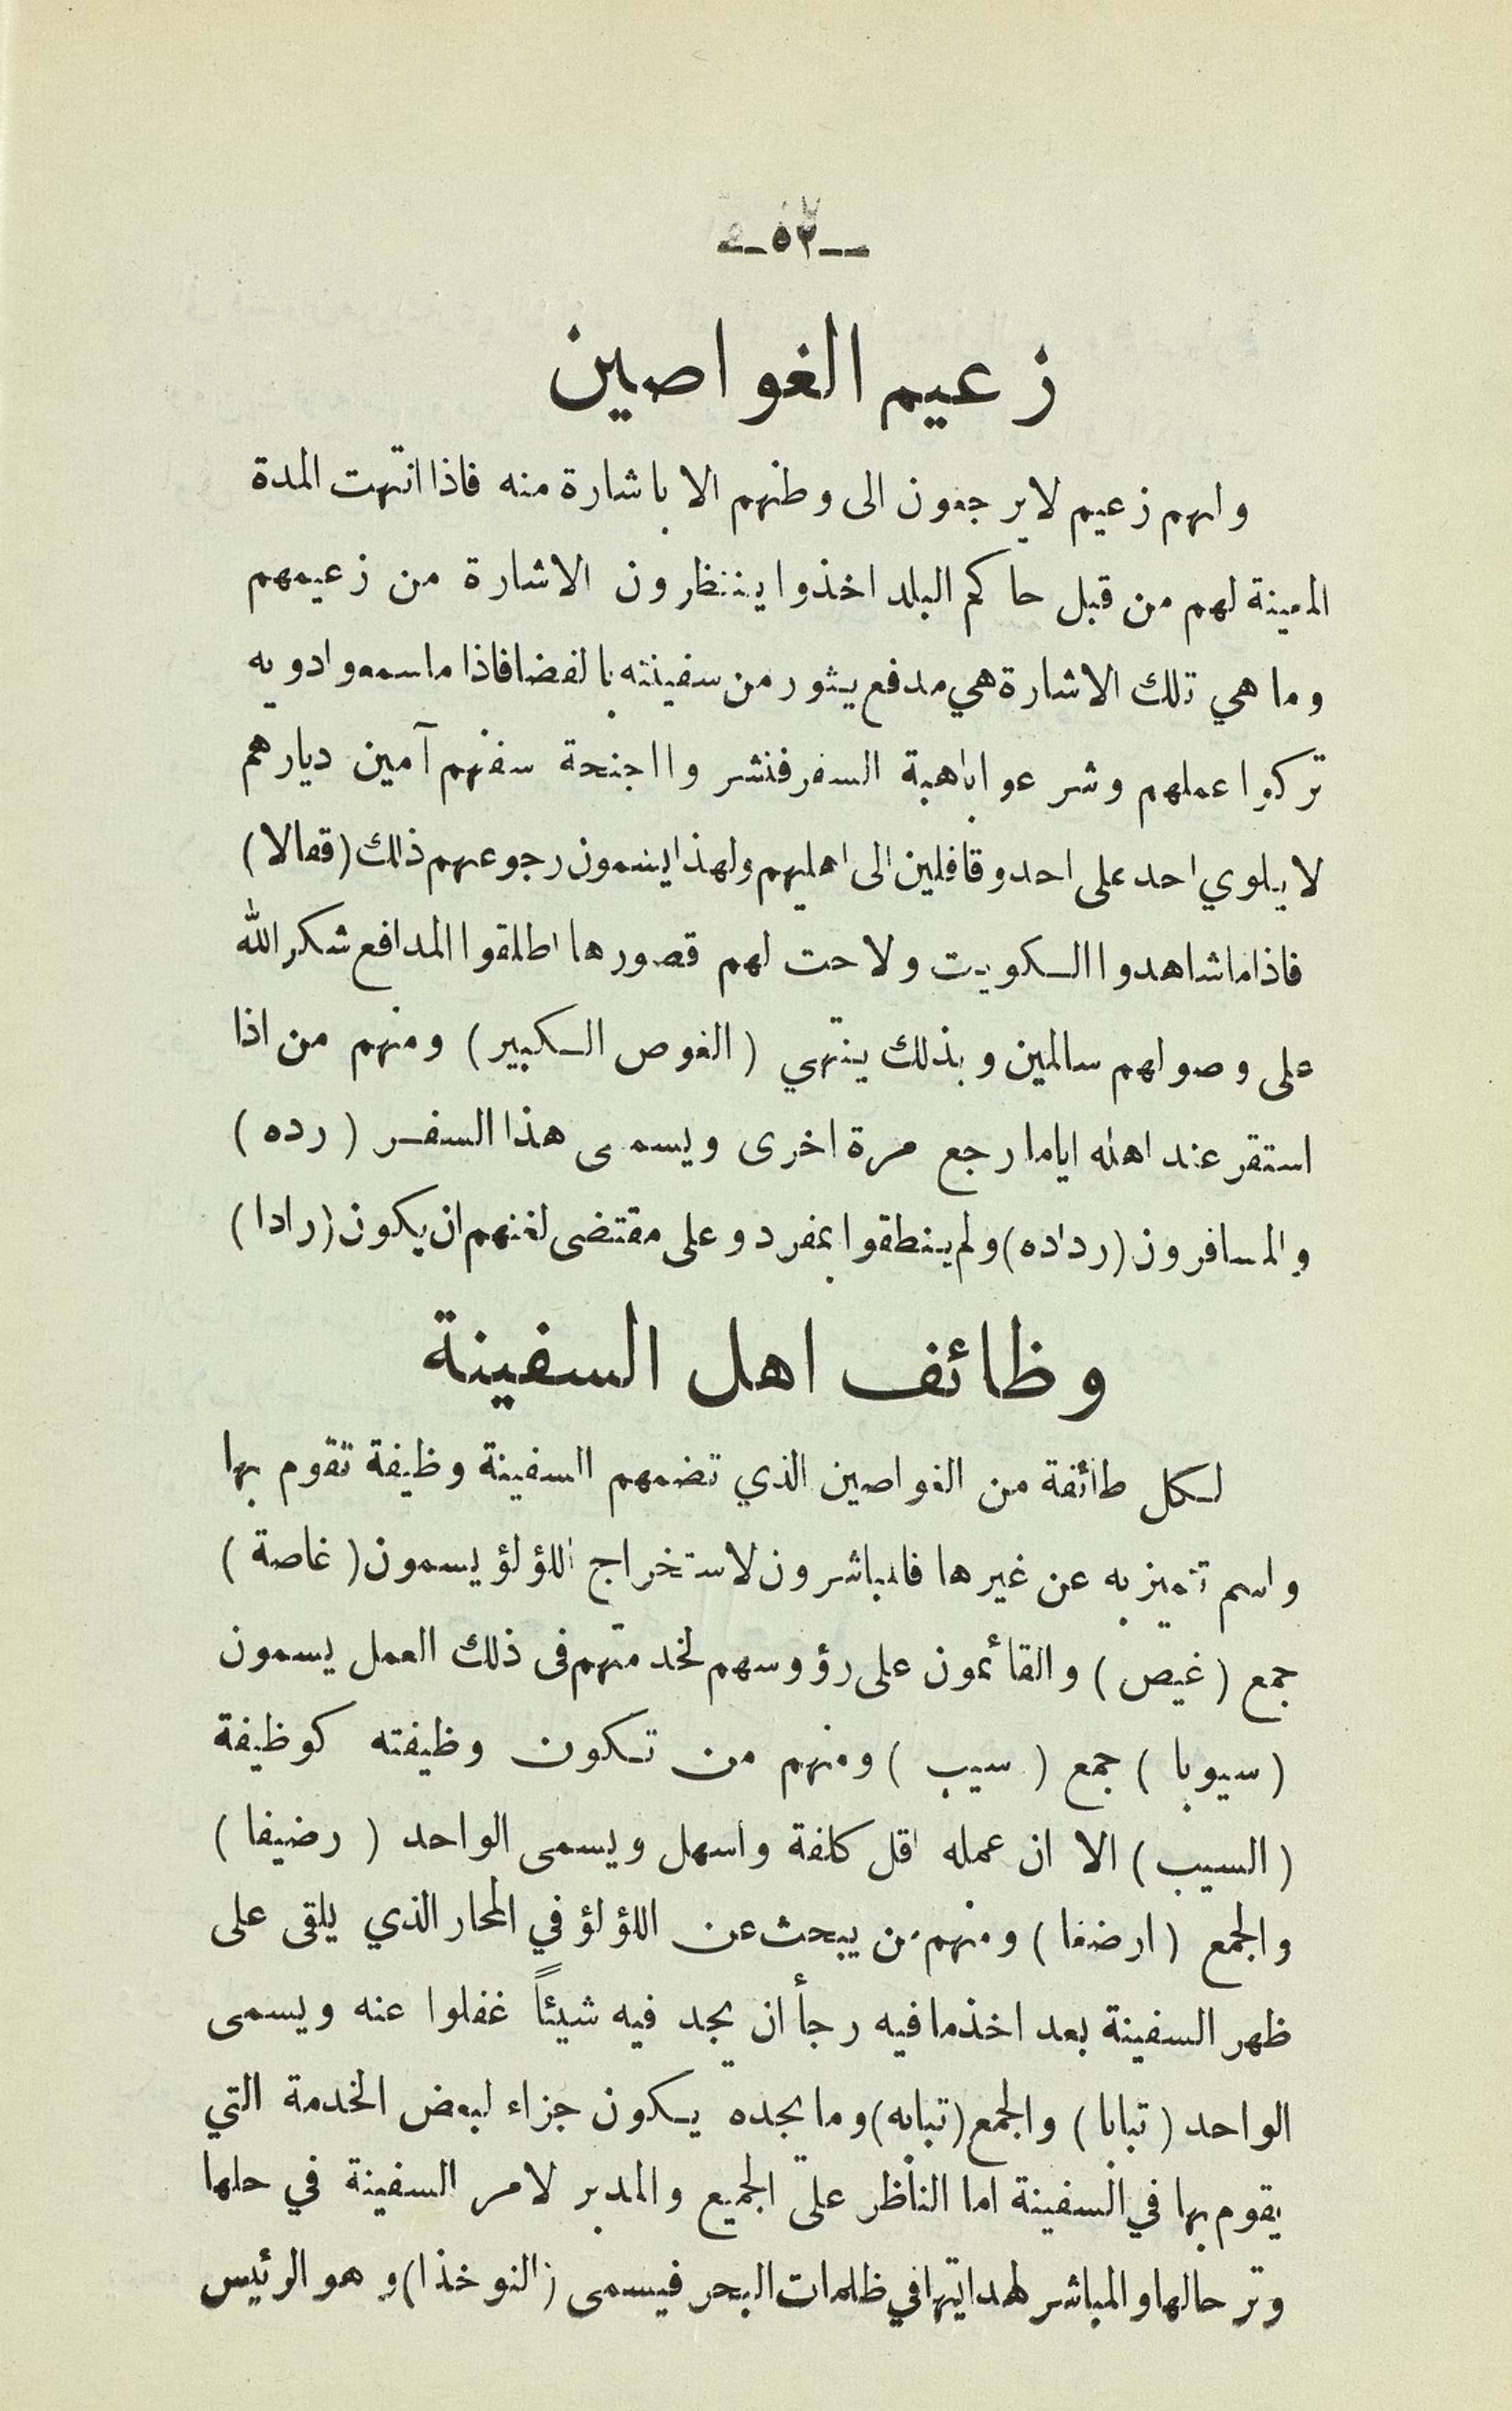 ــ ٥٢ ــ
زعيم الغواصين
ولهم زعيم لا يرجعون الى وطنهم الا باشارة منه فاذا انتهت المدة
المعينة لهم من قبل حاكم البلد اخذوا ينتظرون الاشارة من زعيمهم
وما هي تلك الاشارة هي مدفع يثور من سفينته بالفضا فاذا ما سمعوا دويه
تركوا عملهم وشرعوا باهبة السفر فنشروا اجنحة سفنهم آمين ديارهم
لا يلوي احد على احد وقافلين الى اهليهم ولهذا يسمون رجوعهم ذلك (قفالا)
فاذا ما شاهدوا الكويت ولاحت لهم قصورها اطلقوا المدافع شكر الله
على وصولهم سالمين وبذلك ينتهي (الغوص الكبير) ومنهم من اذا
استقر عند اهله اياما رجع مرة اخرى ويسمى هذا السفر (رده)
والمسافرون (رداده) ولم ينطقوا بمفرد وعلى مقتضى لغتهم ان يكون (رادا)
وظائف اهل السفينة
لكل طائفة من الغواصين الذي تضمهم السفينة وظيفة تقوم بها
واسم تتميز به عن غيرها فالمباشرون لاستخراج اللؤلؤ يسمون (غاصة)
جمع (غيص) والقائمون على رؤوسهم لخدمتهم فى ذلك العمل يسمون
(سيوبا) جمع (سيب) ومنهم من تكون وظيفته كوظيفة
(السيب) الا ان عمله اقل كلفة واسهل ويسمى الواحد (رضيفا)
والجمع (ارضفا) ومنهم من يبحث عن اللؤلؤ في المحار الذي يلقى على
ظهر السفينة بعد اخذ ما فيه رجأ ان يجد فيه شيئاً غفلوا عنه ويسمى
الواحد (تبابا) والجمع (تبابه) وما يجده يكون جزاء لبعض الخدمة التي
يقوم بها في السفينة اما الناظر على الجميع والمدبر لامر السفينة في حلها
وترحالها والمباشر لهدايتها في ظلمات البحر فيسمى (النوخذا) وهو الرئيس